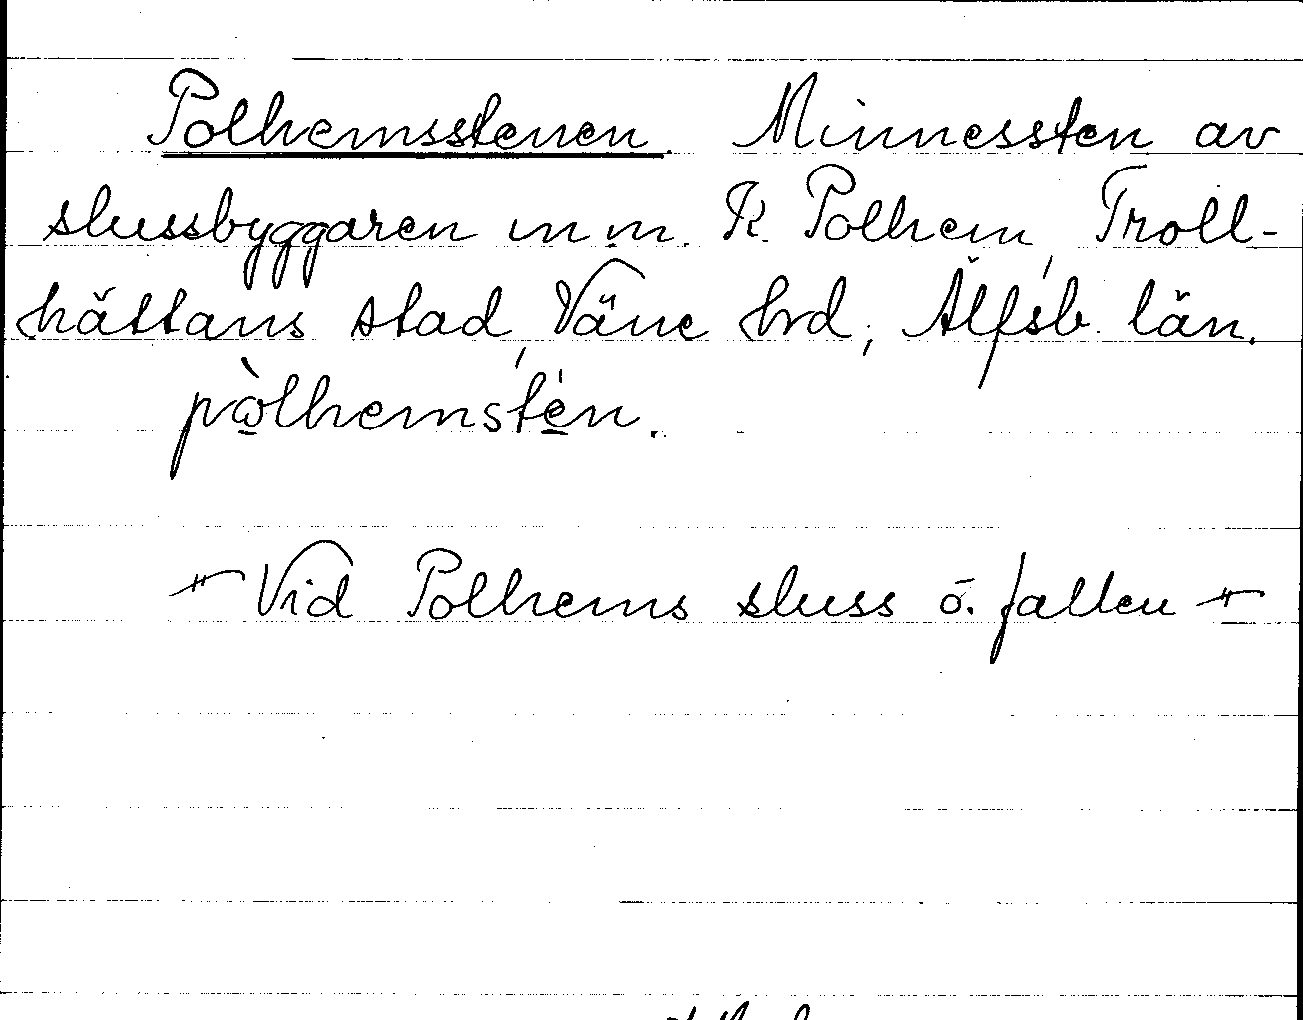 Polhemsstenen. Minnessten av
slussbyggaren m.m. K. Polhem, Troll-
hättans stad, Väne hrd, Älfsb. län.
pòlhemstén.
"Vid Polhems sluss o. fallen"